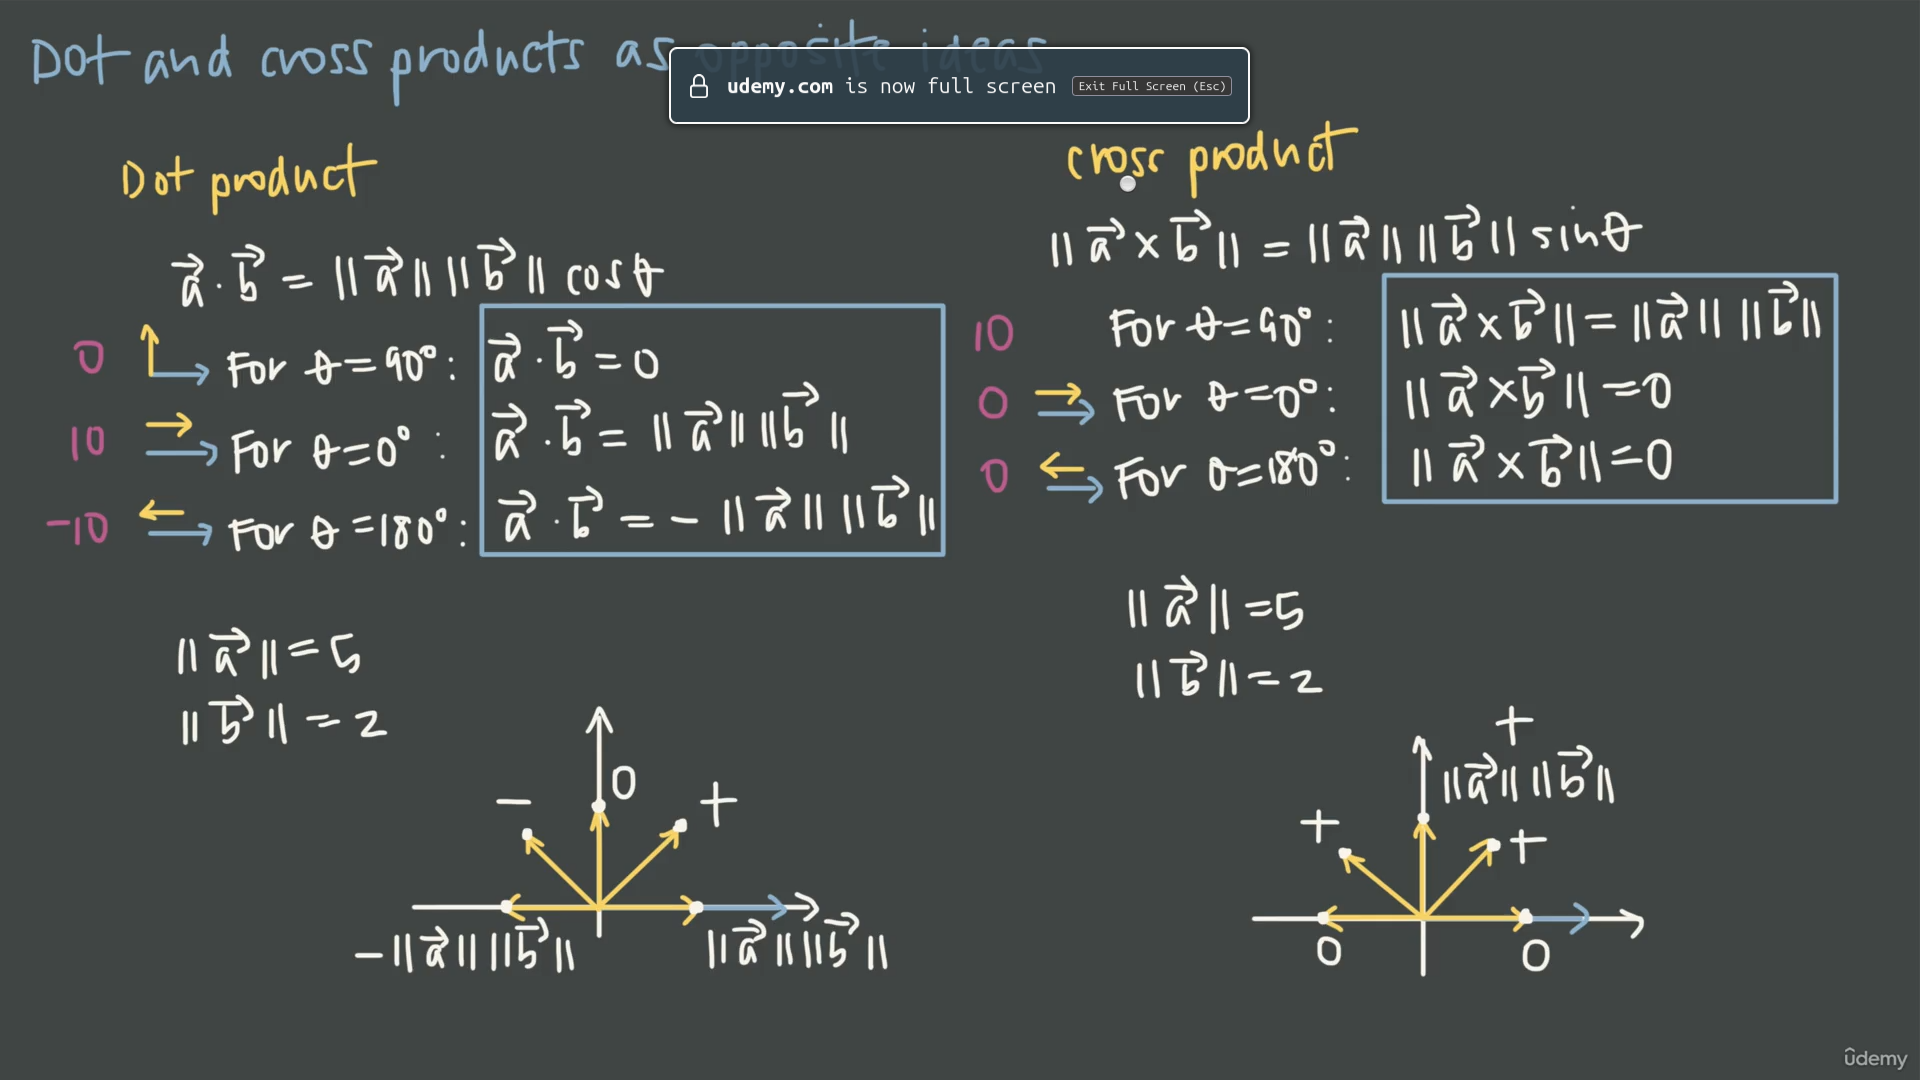 Dot and cross products as opposite ideas
udemy.com is now full screen Exit Full Screen (Esc)
Dot product
a⃗ · b⃗ = ||a⃗|| ||b⃗|| cos θ
0 For θ = 90°: a⃗ · b⃗ = 0
10 For θ = 0°: a⃗ · b⃗ = ||a⃗|| ||b⃗||
-10 For θ = 180°: a⃗ · b⃗ = - ||a⃗|| ||b⃗||
||a⃗|| = 5
||b⃗|| = 2
0
- +
-||a⃗|| ||b⃗|| ||a⃗|| ||b⃗||
cross product
||a⃗ × b⃗|| = ||a⃗|| ||b⃗|| sin θ
10 For θ = 90°: ||a⃗ × b⃗|| = ||a⃗|| ||b⃗||
0 For θ = 0°: ||a⃗ × b⃗|| = 0
0 For θ = 180°: ||a⃗ × b⃗|| = 0
||a⃗|| = 5
||b⃗|| = 2
+
||a⃗|| ||b⃗||
+ +
0 0
ûdemy